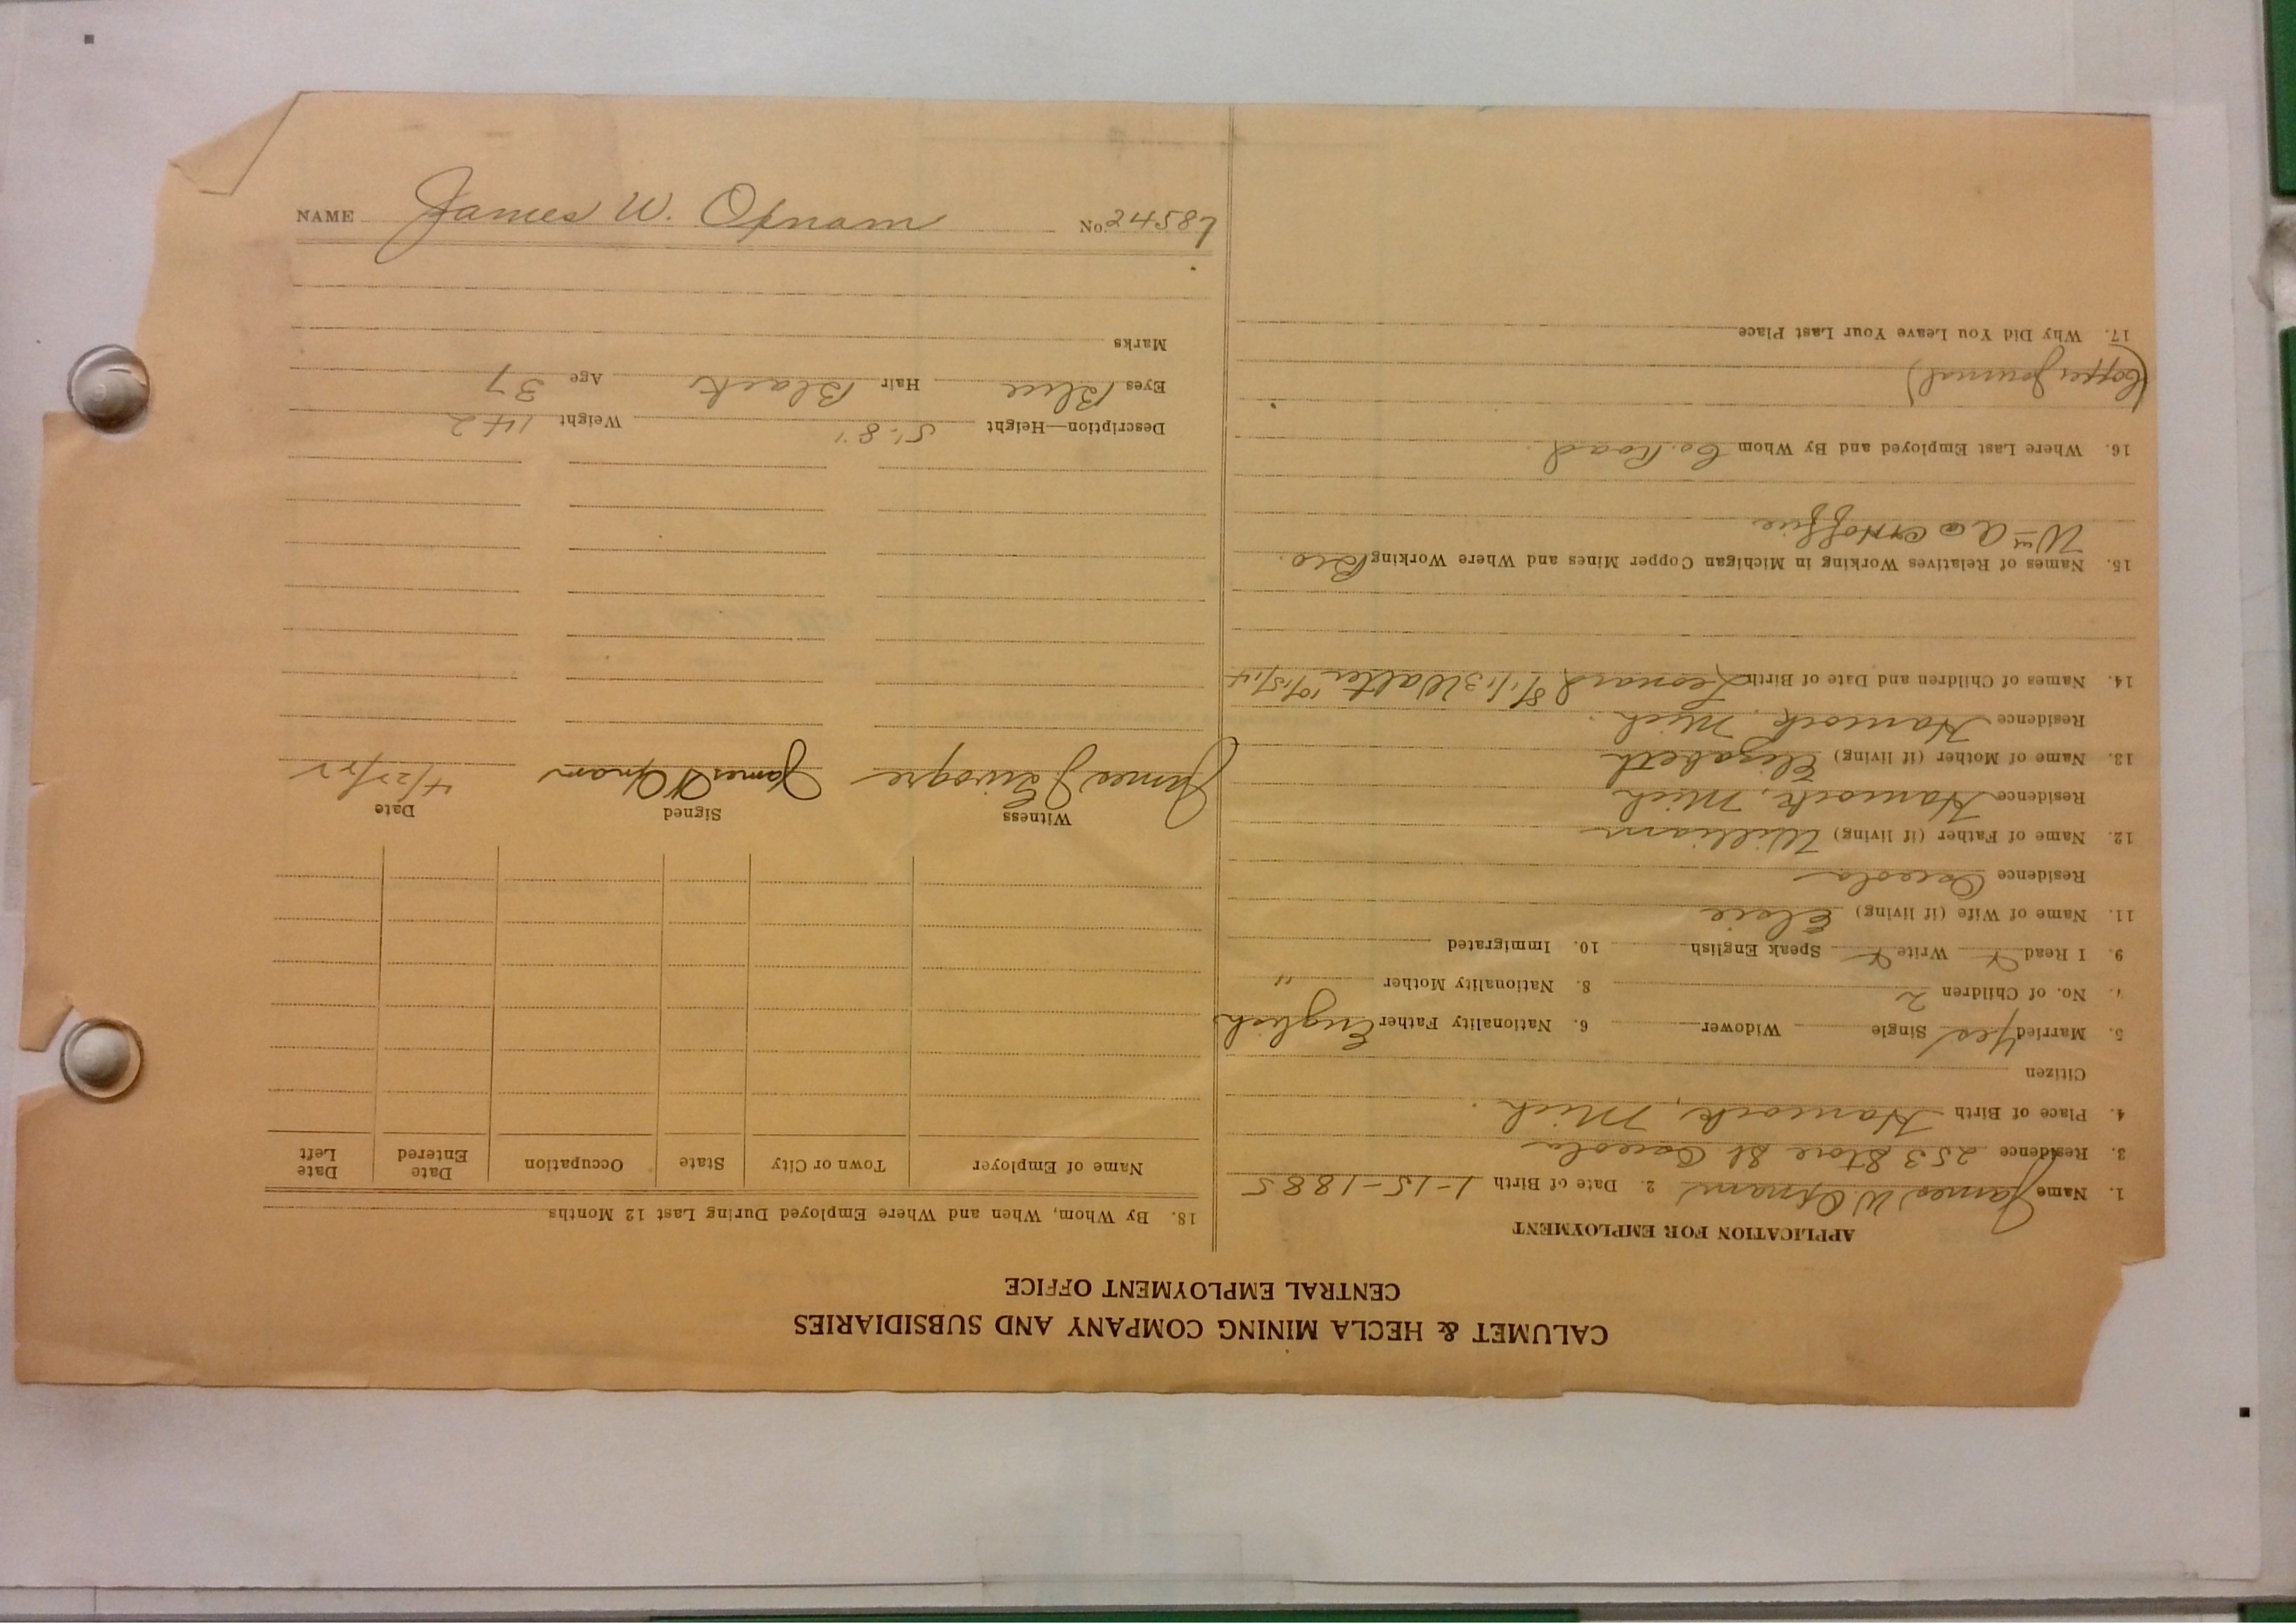 CALUMET & HECLA MINING COMPANY AND SUBSIDIARIES
CENTRAL EMPLOYMENT OFFICE
APPLICATION FOR EMPLOYMENT
1. Name James W Opnam 2. Date of Birth 1-15-1885
3. Residence 253 Stone St Osceola
4. Place of Birth Hancock, Mich.
Citizen
5. Married Yes Single Widower 6. Nationality Father English
7. No. of Children 2 8. Nationality Mother "
9. I Read Write Speak English 10. Immigrated
11. Name of Wife (if living) Elsie
Residence Osceola
12. Name of Father (if living) William
Residence Hancock, Mich
13. Name of Mother (if living) Elizabeth
Residence Hancock, Mich.
14. Names of Children and Date of Birth Leonard 8/1/13 Walter 10/15/14
15. Names of Relatives Working in Michigan Copper Mines and Where Working Bro.
Wm a @ Office
16. Where Last Employed and By Whom Co. Road.
(Copper Journal)
17. Why Did You Leave Your Last Place
18. By Whom, When and Where Employed During Last 12 Months
Name of Employer Town or City State Occupation Date Entered Date Left
Witness Signed Date
James James W Opnam 4/27/22
Description—Height 5' 8" Weight 142
Eyes Blue Hair Black Age 37
Marks
NAME James W. Opnam No. 24587